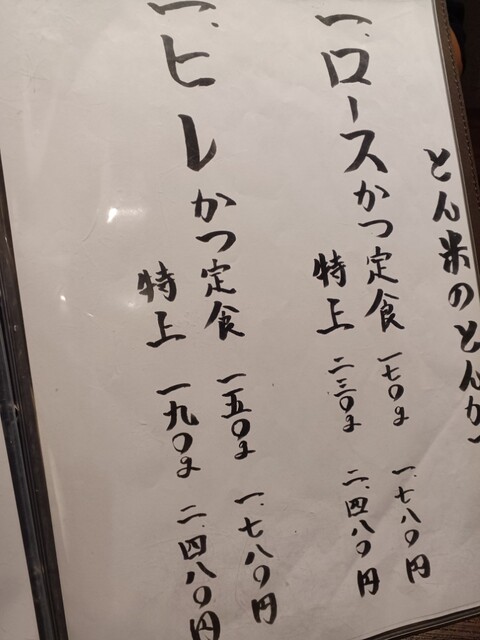 とん米のとんか
一、ロースかつ定食 一七〇g 一、七八〇円
特上 二三〇g 二、四八〇円
一、ヒレかつ定食 一五〇g 一、七八〇円
特上 一九〇g 二、四八〇円